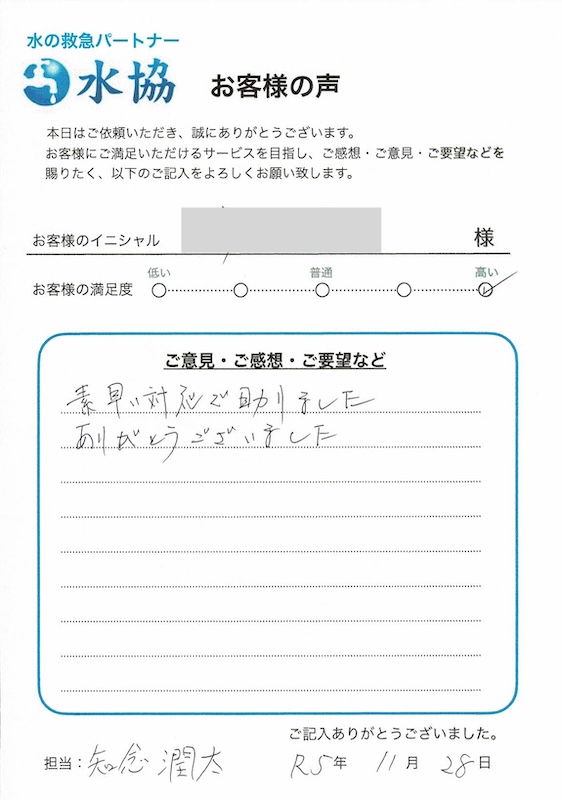 水の救急パートナー
水協 お客様の声
本日はご依頼いただき、誠にありがとうございます。
お客様にご満足いただけるサービスを目指し、ご感想・ご意見・ご要望などを
賜りたく、以下のご記入をよろしくお願い致します。
お客様のイニシャル 様
低い 普通 高い
お客様の満足度
ご意見・ご感想・ご要望など
素早い対応で助りました
ありがとうございました
ご記入ありがとうございました。
担当：知念 潤太 R5年 11月 28日